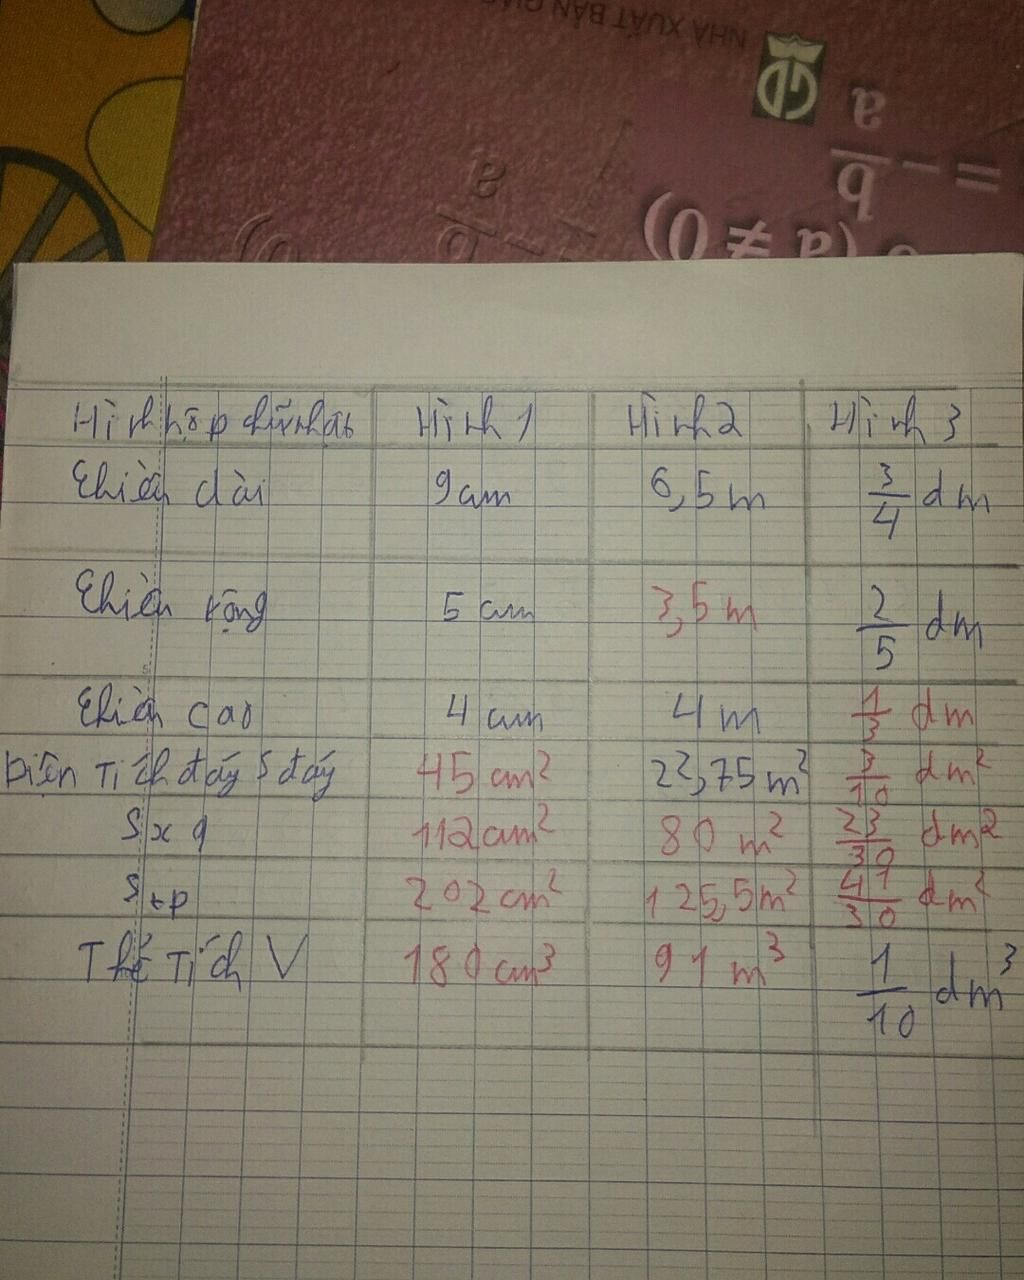 NHÀ XUẤT BẢN GIÁO
GD
= - b/a
(a ≠ 0)
Hình hộp chữ nhật Hình 1 Hình 2 Hình 3
Chiều dài 9cm 6,5m 3/4 dm
Chiều rộng 5 cm 3,5 m 2/5 dm
Chiều cao 4 cm 4 m 1/3 dm
Diện Tích đáy S đáy 45 cm² 22,75 m² 3/10 dm²
Sxq 112cm² 80 m² 23/30 dm²
Stp 202cm² 125,5m² 41/30 dm²
Thể Tích V 180cm³ 91 m³ 1/10 dm³